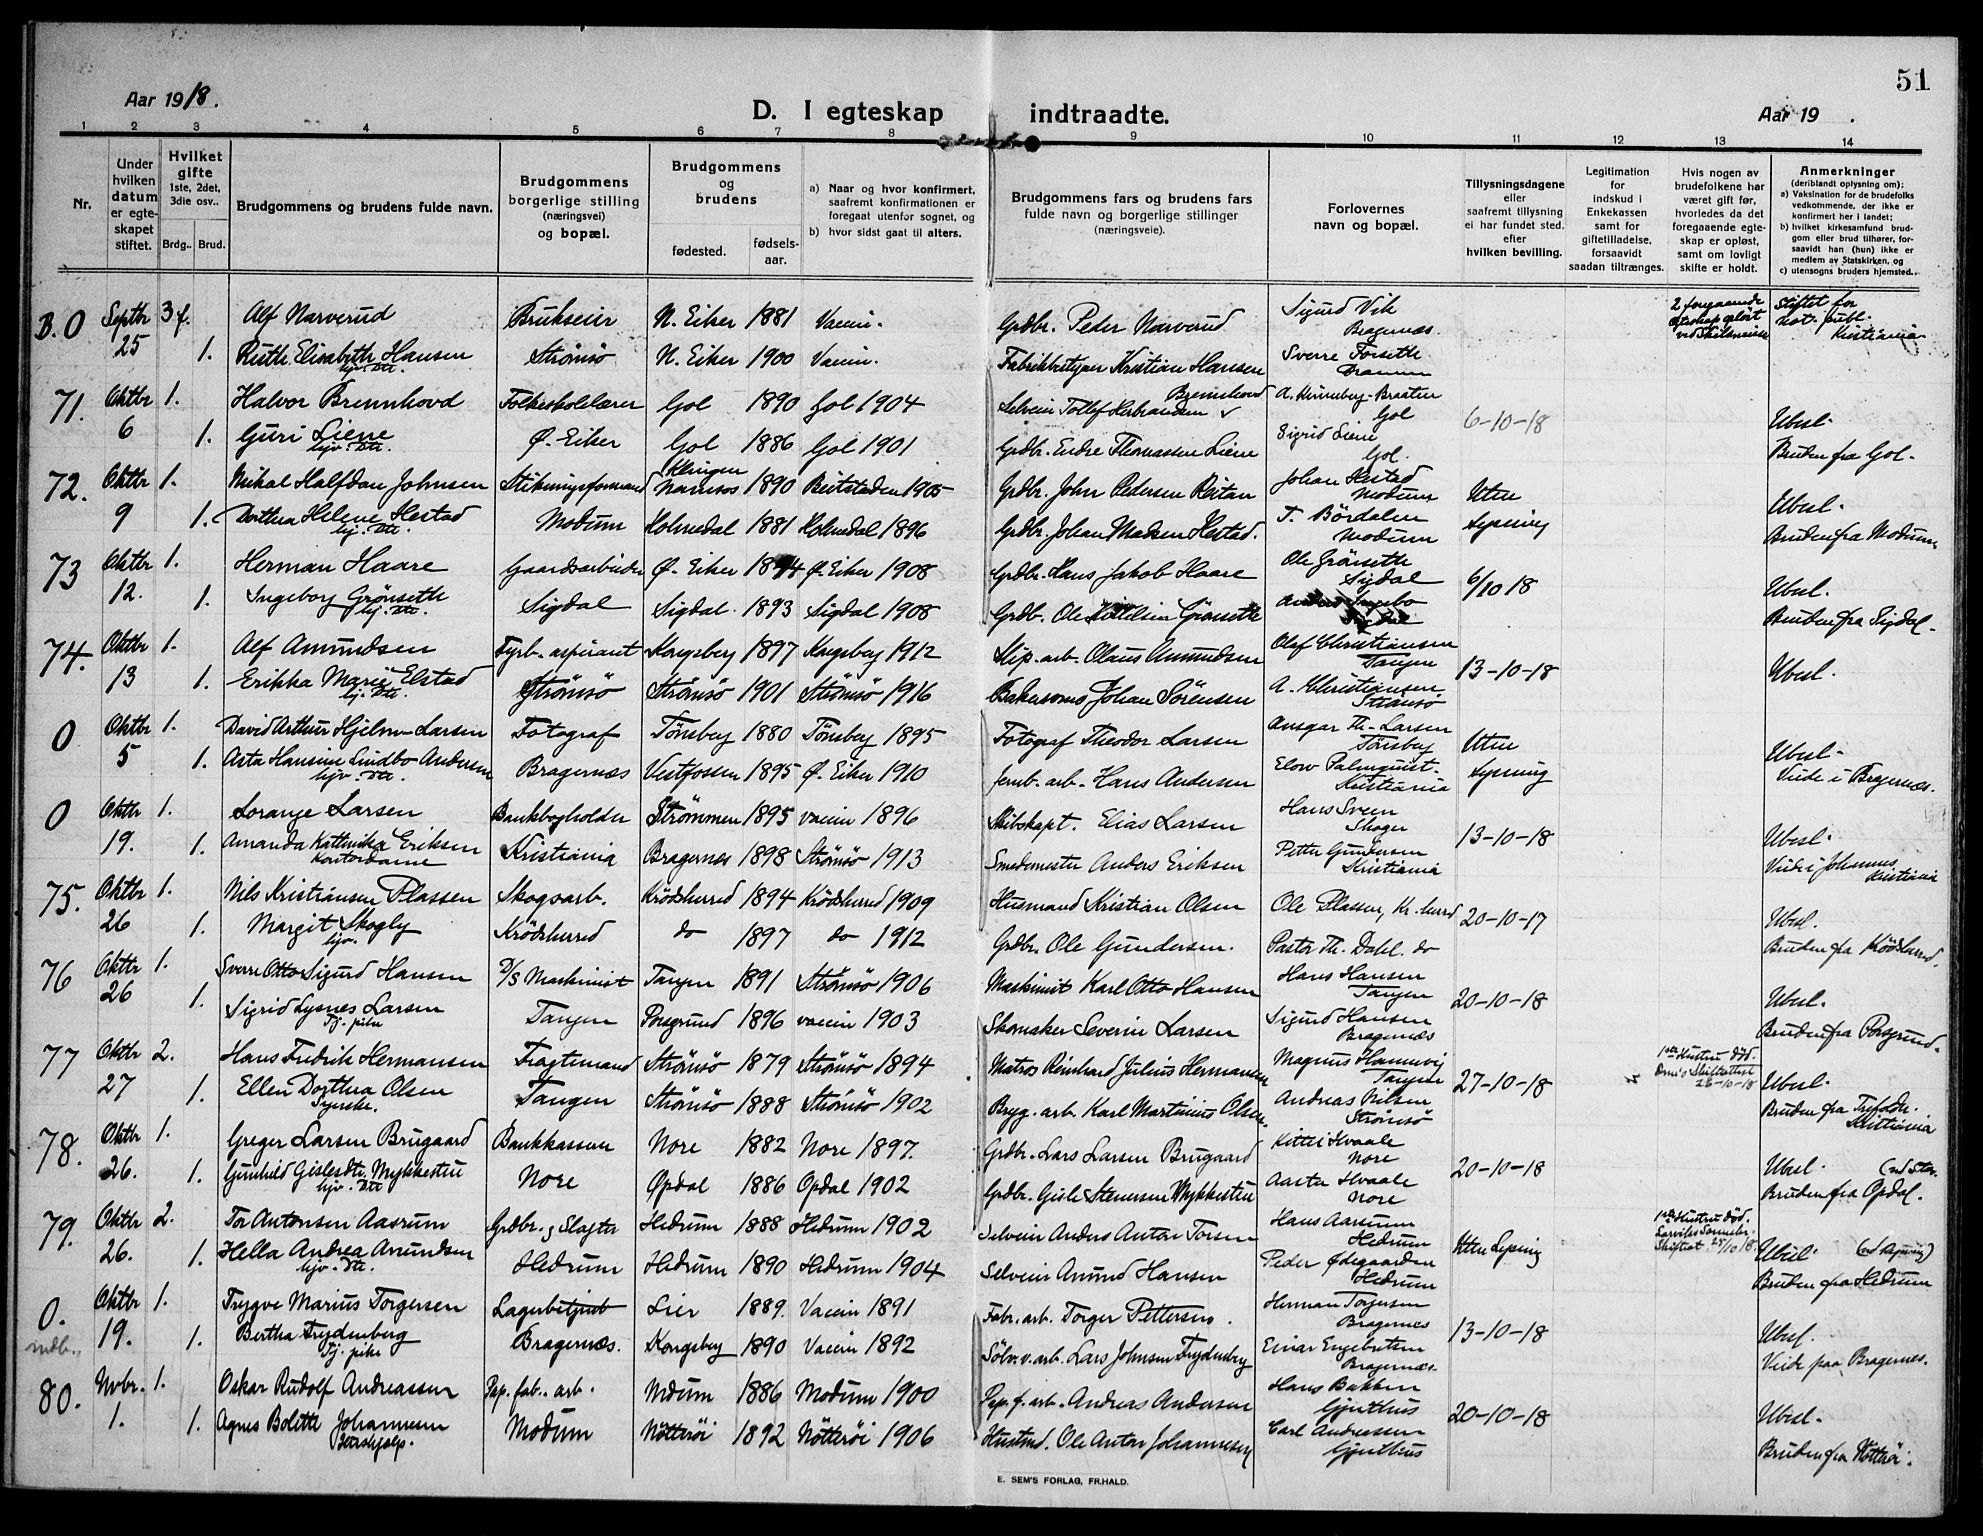 51
Aar 1918.
D. I egteskap indtraadte.
Aar 19 .
1 2 3 4 5 6 7 8 9 10 11 12 13 14
Nr.
Under hvilken datum er egteskapet stiftet.
Hvilket gifte 1ste, 2det, 3die osv..
Brdg.. Brud.
Brudgommens og brudens fulde navn.
Brudgommens borgerlige stilling (næringsvei) og bopæl.
Brudgommens og brudens
fødested. fødsels-aar.
a) Naar og hvor konfirmert, saafremt konfirmationen er foregaat utenfor sognet, og
b) hvor sidst gaat til alters.
Brudgommens fars og brudens fars fulde navn og borgerlige stillinger (næringsveie).
Forlovernes navn og bopæl.
Tillysningsdagene eller saafremt tillysning ei har fundet sted. efter hvilken bevilling.
Legitimation for indskud i Enkekassen samt for giftetilladelse, forsaavidt saadan tiltrænges.
Hvis nogen av brudefolkene har været gift før, hvorledes da det foregaaende egteskap er opløst, samt om lovligt skifte er holdt.
Anmerkninger (deriblandt oplysning om):
a) Vaksination for de brudefolks vedkommende, der ikke er konfirmert her i landet;
b) hvilket kirkesamfund brudgom eller brud tilhører, forsaavidt han (hun) ikke er medlem av Statskirken, og
c) utensogns bruders hjemsted..
B. 0 Septbr 3 f. Alf Narverud Brukseier N. Eiker 1881 Vaccin. Grdbr. Peder Narverud Sigurd Vik Bragernæs. 2 foregaaende egteskap opløst ved Skilsmisse Stiftet for not. publ. Kristiania
25 1. Ruth Elisabeth Hansen hjv. Dtr. Strømsø N. Eiker 1900 Vaccin. Fabrikbestyrer Kristian Hansen Sverre Forseth Drammen
71. Oktbr 1. Halvor Brennhovd Folkeskolelærer Gol 1890 Gol 1904 Selveier Tollef Herbrandsen Brennhovd A. Gol 6-10-18 Ubesl.
6 1. Guri Liene hjv. Dtr. Ø. Eiker Gol 1886 Gol 1901 Grdbr. Endre Thomassen Liene Sigrid Liene Gol. Bruden fra Gol.
72. Oktbr 1. Mikal Halfdan Johnsen Stikningsformand Klingen Namsos 1890 Beitstaden 1905 Grdbr. John Pedersen Reitan Johan Hestad Modum Uten Ubesl.
9 1. Dorthea Helene Hestad hj. Dtr. Modum Holmedal 1881 Holmedal 1896 Grdbr. Johan Madsen Hestad. T. Bördalen Modum Lysning Bruden fra Modum
73 Oktbr 1. Herman Haare Gaardsarbeider Ø. Eiker 1894 Ø. Eiker 1908 Grdbr. Hans Jakob Haare Ole Grönseth Sigdal 6/10 18 Ubesl.
12. 1. Ingeborg Grønseth hj. Dtr. Sigdal Sigdal. 1893 Sigdal 1908 Grdb. Ole Grønseth Bruden fra Sigdal.
74. Oktbr 1. Alf Amundsen Fyrb. aspirant Kongsberg 1897 Kongsberg 1912 Slip. arb. Olaus Amundsen Olaf Christiansen Tangen 13-10-18 Ubesl.
13 1. Erikka Marie Elstad hj. Dtr. Strömsö Strömsö 1901 Strömsö 1916 Johan Sörensen A. Christiansen Strömsö
0 Oktbr 1. David Arthur Hjelm Larsen Fotograf Tönsberg 1880 Tönsberg 1895 Fotograf Theodor Larsen Ansgar Th. Larsen Tönsberg Uten Ubesl.
5 1. Asta Hansine Lindbo Andersen hjv. Dtr. Bragernæs Vestfossen 1895 Ø. Eiker 1910 Jernb. arb. Hans Andersen Palmquist. Kristiania Lysning Viede i Bragernæs.
0 Oktbr 1. Lorange Larsen Bankbogholder Strömmen 1895 vaccin 1896 Skibskapt. Elias Larsen Hans Sveen Skoger 13-10-18 Ubesl.
19. 1. Amanda Kathinka Eriksen Kontordame Kristiania Bragernes 1898 Strömsö 1913 Smedemester Anders Eriksen Petter Gundersen Kristiania Viede i Johannes Kristiania
75. Oktbr 1. Nils Kristiansen Plassen Skogsarb. Krödsherred 1894 Krödsherred 1909 Husmand Kristian Olsen Ole Plassen, Kr. herred 20-10-17 Ubesl.
26 1. Margit Skogly hjv. Krödsherred do 1897 do 1912 Grdbr. Ole Gundersen. Pastor Th. Dahl. do Bruden fra Krödsherred.
76 Oktbr 1. Sverre Otto Sigurd Hansen D/S Maskinist Tangen 1891 Strömsö 1906 Maskinist Karl Otto Hansen Hans Hansen Tangen 20-10-18 Ubesl.
26 1. Sigrid Lysnes Larsen Tj. pike Tangen Porsgrund 1896 vaccin 1903 Skomaker Severin Larsen Sigurd Hansen Bragernæs Bruden fra Porsgrund.
77 Oktbr 2. Hans Fredrik Hermansen Fragtemand Strömsö 1879 Strömsö 1894 Matros Reinhard Julius Hermansen Magnus Tangen 27-10-18 1ste Hustru död. Skifteattest 25-10-18 Ubesl.
27 1. Ellen Dorthea Olsen Syerske. Tangen Strömsö 1888 Strömsö 1902 Bryg. arb. Karl Martinius Olsen. Andreas Nilsen Strömsö Bruden fra Kristiania
78. Oktbr 1. Greger Larsen Brugaard Bankkasserer Nore 1882 Nore 1897. Grdbr. Lars Larsen Brugaard Kittil Hvaale Nore 20-10-18 Ubesl.
26. 1. Gunhild Gislesdtr. Mykkestue hjv. Dtr. Nore Opdal 1886 Opdal 1902 Grdbr. Gisle Stenersen Mykkestue Aasta Hvaale Nore Bruden fra Opdal.
79. Oktbr 2. Tor Antonsen Aasrum Grdbr. & Slagter Hedrum 1888 Hedrum 1902 Selveier Anders Anton Torsen Hans Aasrum Hedrum Uten Lysning 1ste Hustru död. Larviks Sorenskr. Skifteat. 25/10 18. Ubesl.
26. 1. Hella Andrea Anundsen hjv. Dtr. Hedrum Hedrum 1890 Hedrum 1904 Selveier Anund Hansen Peder Ødegaarden Hedrum Bruden fra Hedrum
0. Oktbr 1. Trygve Marius Torgersen Lagerbetjent Lier 1889. Vaccin 1891 Fabr. arb. Torger Pettersen. Herman Torgersen Bragernes 13-10-18 Ubesl.
indb. 19. 1. Bertha Frydenberg Tj. pike Bragernæs. Kongsberg 1890 Vaccin 1892 Sölvv. arb. Lars Johnsen Frydenberg Einar Engebretsen Bragernæs. Viede paa Bragernes.
80. Nvbr. 1. Oskar Rudolf Andreassen Pap. fab. arb. Modum 1886 Modum 1900 Pap. f. arb. Andreas Andersen Hans Bakken Gjeithus 20-10-18 Ubesl.
1. 1. Agnes Bolette Johannesen Modum Nötterøi 1892 Nötterøi 1906 Husmd. Ole Anton Johannesen Carl Andreassen Gjeithus Bruden fra Nötterøi.
E. SEM'S FORLAG, FR.HALD.